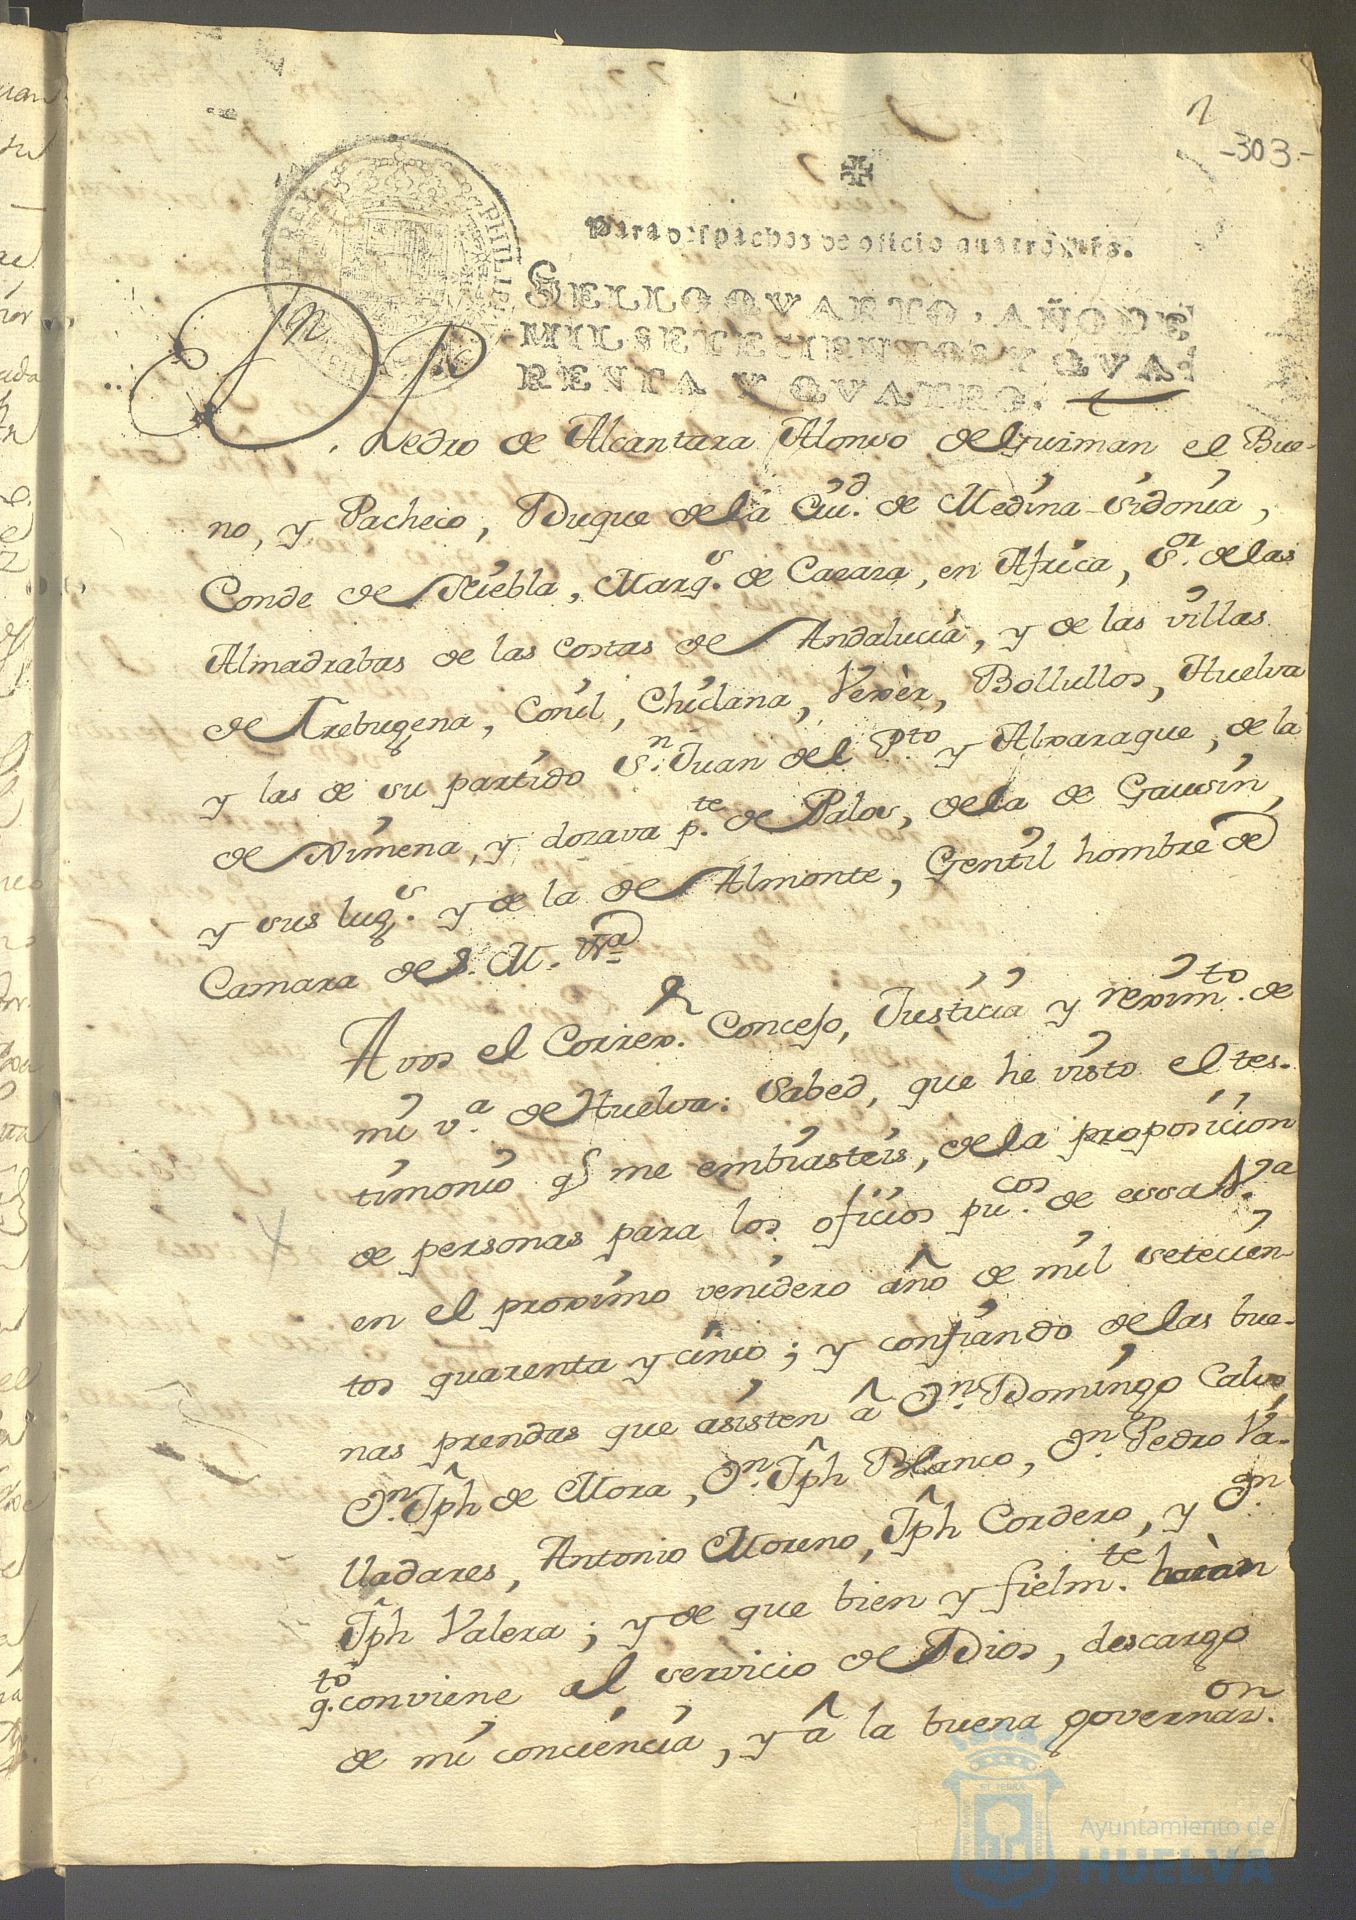 2
-303-
Para despachos de oficio quatro mrs.
SELLO QVARTO, AÑO DE
MIL SETECIENTOS Y QVA-
RENTA Y QVATRO.
Dn Pedro de Alcantara Alonso de Guzman el Bue-
no, y Pacheco, Duque de la Ciu.d de Medina Sidonia,
Conde de Niebla, Marq.s de Cazaza, en Africa, S.or de las
Almadrabas de las costas de Andalucia, y de las villas
de Trebugena, Conil, Chiclana, Vexèr, Bollullos, Huelva
y las de su partido S.n Juan del P.to y Alxaraque, de la
de Ximena, y dozava p.te de Palos, de la de Gausin,
y sus lug.s y de la de Almonte, Gentil hombre de
Camara de S. M. &a
A vos el Correx.r Concejo, Justicia y rexim.to de
mi v.a de Huelva: Sabed, que he visto el tes-
timonio q.e me embiasteis, de la proposicion
de personas para los oficios pu.cos de essa V.a
en el proximo venidero año de mil setecien-
tos quarenta y cinco; y confiando de las bue-
nas prendas que asisten â D.n Domingo Calvo,
D.n Jph de Mora, D.n Jph Blanco, D.n Pedro Va-
lladares, Antonio Moreno, Jph Cordero, y D.n
Jph Valera; y de que bien y fielm.te haràn
q.to conviene al servicio de Dios, descargo
de mi conciencia, y â la buena governaz.on
Ayuntamiento de
HUELVA